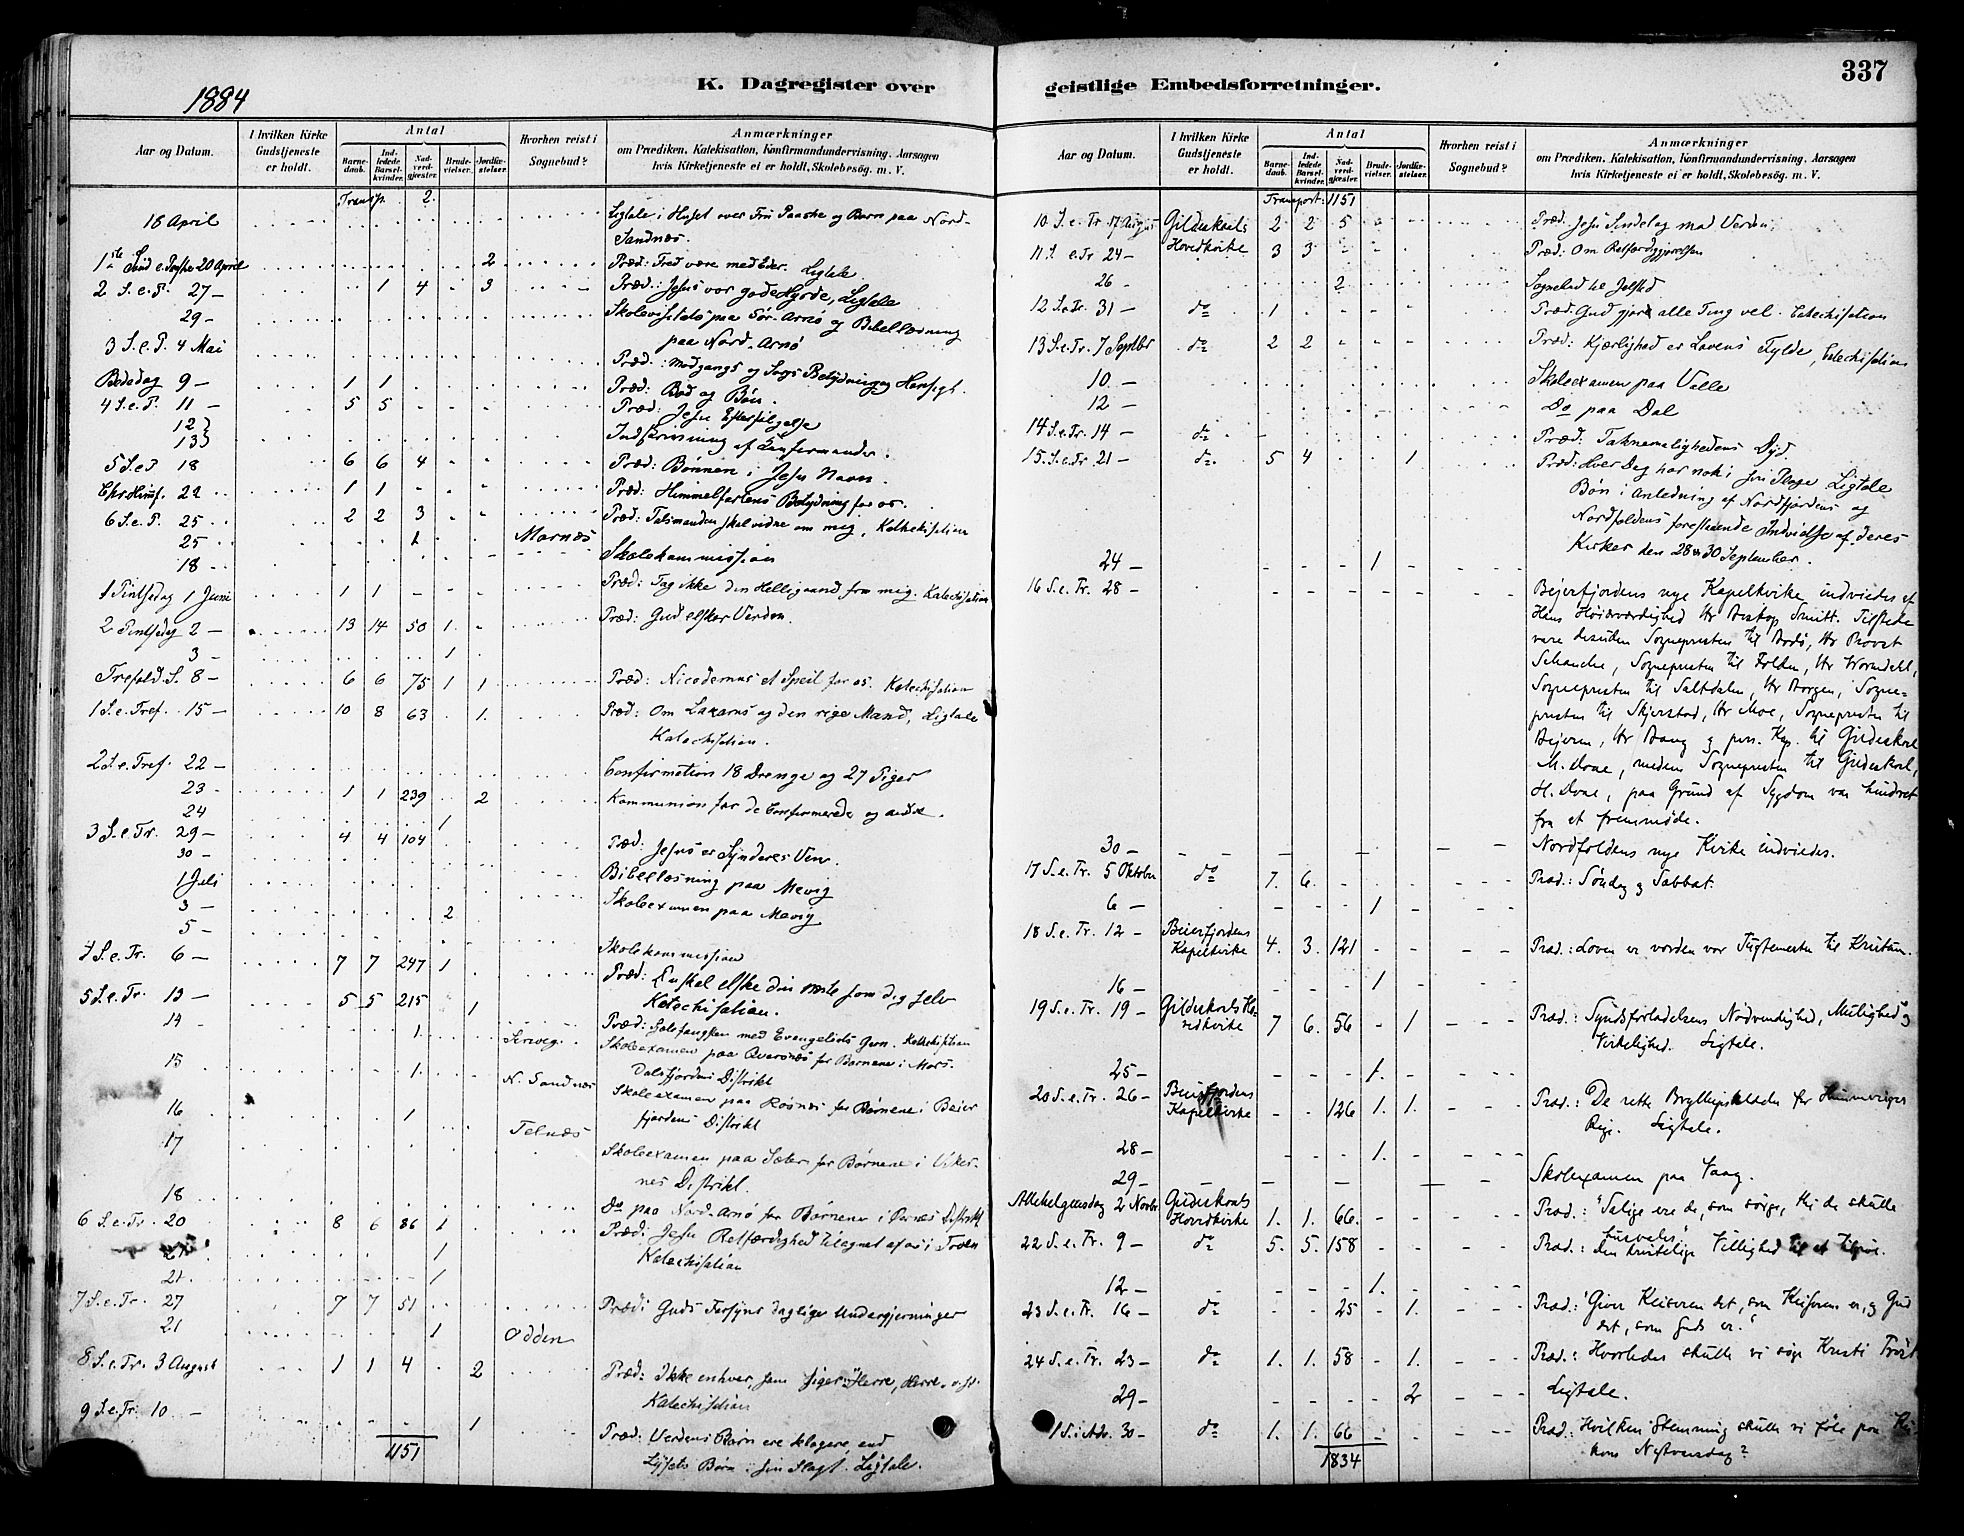 337
K. Dagregister over
geistlige Embedsforretninger.
1884
Aar og Datum.
I hvilken Kirke Gudstjeneste er holdt.
Antal
Barnedaab.
Indledede Barselkvinder.
Nadverdgjæster.
Brudevielser.
Jordfæstelser.
Hvorhen reist i Sognebud?
Anmærkninger
om Prædiken, Katekisation, Konfirmandundervisning. Aarsagen
hvis Kirketjeneste ei er holdt, Skolebesøg. m. V.
Transp. 2.
16 April Ligtale i Huset over Fru Paaske og Barn paa Nord-
Sandnæs.
1ste Sønd e. Paaske 20 April 2 Præd: Fred være med Eder. Ligtale
2 S. e. P. 27 - 1 4 3 Præd: Jesus vor gode Hyrde, Ligtale
29 - Skolevisitats paa Sør-Arnø og Bibellæsning
paa Nord-Arnø
3 S. e. P. 4 Mai Præd: Modgangs og Sorgs Betydning og Hensigt
Bededag 9 - 1 1 Præd: Bod og Bøn.
4 S. e. P. 11 - 5 5 Præd: Jesu Efterfølgelse
12 }
13 } Indskrivning af Konfirmander.
5 S. e P. 18 6 6 4 Præd: Bønnen i Jesu Navn.
Chr Himf. 22 1 1 - Præd: Himmelfartens Betydning for os.
6 S. e. P. 25 2 2 3 Præd: Talsmanden skal vidne om mig, Kathekisation
25 1 Mornæs
18 Skolekommission
1 Pintsedag 1 Juni 1 1 - Præd: Tag ikke din Helligaand fra mig. Katechisation
2 Pintsedag 2 - 13 14 50 1 - Præd: Gud elsker Verden.
3 - 1
Trefold. S. 8 - 6 6 75 1 1 Præd: Nicodemus et Speil for os. Katechisation
1 S. e. Tref. 15 - 10 8 63 1. Præd: Om Lazarus og den rige Mand, Ligtale
Katechisation.
2 S. e. Tref. 22 - Confirmation 18 Drenge og 27 Piger
23 - 1 1 239 2 Kommunion for de Confirmerede og andre.
24 1
3 S. e. Tr. 29 - 4 4 104 Præd: Jesus er Synderes Ven.
30 - Bibellæsning paa Mevig
1 Juli Skoleexamen paa Mevig
3 - 2
5 - Skolekommission
4 S. e. Tr. 6 - 7 7 247 1 Præd: Du skal elske din Næste som dig selv
Katechisation.
5 S. e. Tr. 13 - 5 5 215 1 Præd: Sælefangsten med Evangeliets Garn. Kathechisation
14 - 1. Skoleexamen paa Kversnæs for Børnene i Mors-
Dalsfjordens Distrikt
15 1. N. Sandnæs Skoleexamen paa Rosnæs for Børnene i Beier
fjordens Distrikt
16 1 Telnæs
17 Skoleexamen paa Sæter for Børnene i
nes Distrikt.
18 do paa Nord-Arnø for Børnene i Ørnæs Distrikt
6 S. e. Tr. 20 8 6 86 1 Præd: Jesu Retfærdighed tilegnet af os i Troen
Katechisation
1
21 1
7 S. e. Tr. 27 7 7 51 Præd: Guds Forsyns daglige Undergjerninger
21 1 Odden
8 S. e. Tr. 3 August 1 1 4 2 Præd: Ikke enhver, som siger: Herre, Herre, o.s.v.
Katechisation
9 S. e. Tr. 10 - 1 Præd: Verdens Børn ere klogere, end
Lysets Børn i sin Slægt. Ligtale.
1151
Aar og Datum.
I hvilken Kirke Gudstjeneste er holdt.
Antal
Barnedaab.
Indledede Barselkvinder.
Nadverdgjæster.
Brudevielser.
Jordfæstelser.
Hvorhen reist i Sognebud?
Anmærkninger
om Prædiken, Katekisation, Konfirmandundervisning. Aarsagen
hvis Kirketjeneste ei er holdt, Skolebesøg. m. V.
Transport: 1151
10 S. e. Tr. 17 August Gildeskaals Hovedkirke 2 2 5 Præd: Jesu Sindelag mod Verden.
11 S. e Tr 24 - 3 3 - Præd: Om Retfærdiggjørelsen
26 - 2 Sognebud til
12 S. e. Tr. 31 - do 1 - Præd: Gud gjorde alle Ting vel. Catechisation
13 S. e. Tr. 7 Septbr do 2 2 - Præd: Kjærlighed er Lovens Fylde, Catechisation
10 - Skoleexamen paa Valle
12 - Do paa Dal
14 S. e. Tr. 14 - do Præd: Taknemmelighedens Dyd.
15. S. e. Tr. 21 - do 5 4 1 Præd: Hver Dag har nok i sin Plage Ligtale
Bøn i Anledning af Nordfjordens og
Nordfoldens forestaaende Indvielse af deres
Kirker den 28 og 30 September.
24 - 1
16 S. e. Tr. 28 - Beierfjordens nye Kapelkirke indviedes af
Hans Høiærværdighed Hr Biskop Smitt. Tilstede
vare desuden Sognepresten til Bodø, Hr Provst
Schanche, Sognepresten til Folden, Hr Worndahl,
Sognepresten til Saltdalen, Hr Borgen, Sogne-
presten til Skjerstad, Hr Moe, Sognepresten til
Beieren, Hr Bang og pers. Kap. til Gildeskaal
M. Hvae, medens Sognepresten til Gildeskaal,
H. Hvae, paa Grund af Sygdom var hindret
fra at fremmøde.
30 - Nordfoldens nye Kirke indviedes.
17 S. e. Tr. 5 Oktober do 7. 6. - Præd.: Søndag og Sabbat.
6 - 1
18 S. e. Tr. 12 - Beierfjordens Kapelkirke 4. 3. 121 Præd.: Loven er vorden vor Tugtemester til Kristum.
16 - 1
19 S. e. Tr. 19 - Gildeskaals Hovedkirke 7 6. 56 - 1 Præd.: Syndsforladelsens Nødvendighed, Mulighed og
Virkelighed. Ligtale.
25 - 1.
20 S. e. Tr. 26 - Beierfjordens Kapelkirke - - 126 1. 1. Præd.: De rette Bryllupsklæder for Himmeriges
Rige. Ligtale.
28 - 1.
29 - Skoleexamen paa Vaag.
Allehelgensdag 2 Novbr. Gildeskaals Hovedkirke 1. 1. 66. Præd.: "Salige ere de, som sørge, thi de skulle
husvales".
22 S. e. Tr. 9 - do 5. 5. 158 Præd.: Den kristelige Villighed til at tilgive.
12 - 1.
23 S. e. Tr. 16 - do - - 25 - 1. Præd.: "Giver Keiseren det, som Keiserens er, og Gud
det, som Guds er."
24 S. e. Tr. 23 - do 1. 1. 58 - 1. Præd.: Hvorledes skulle vi søge Kristi Trøst
Ligtale.
29 - 2
1 S. i Adv. 30 - do 1. 1. 66 Præd.: Hvilken Stemning skulle vi føle paa
Nytaarsdag?
1834